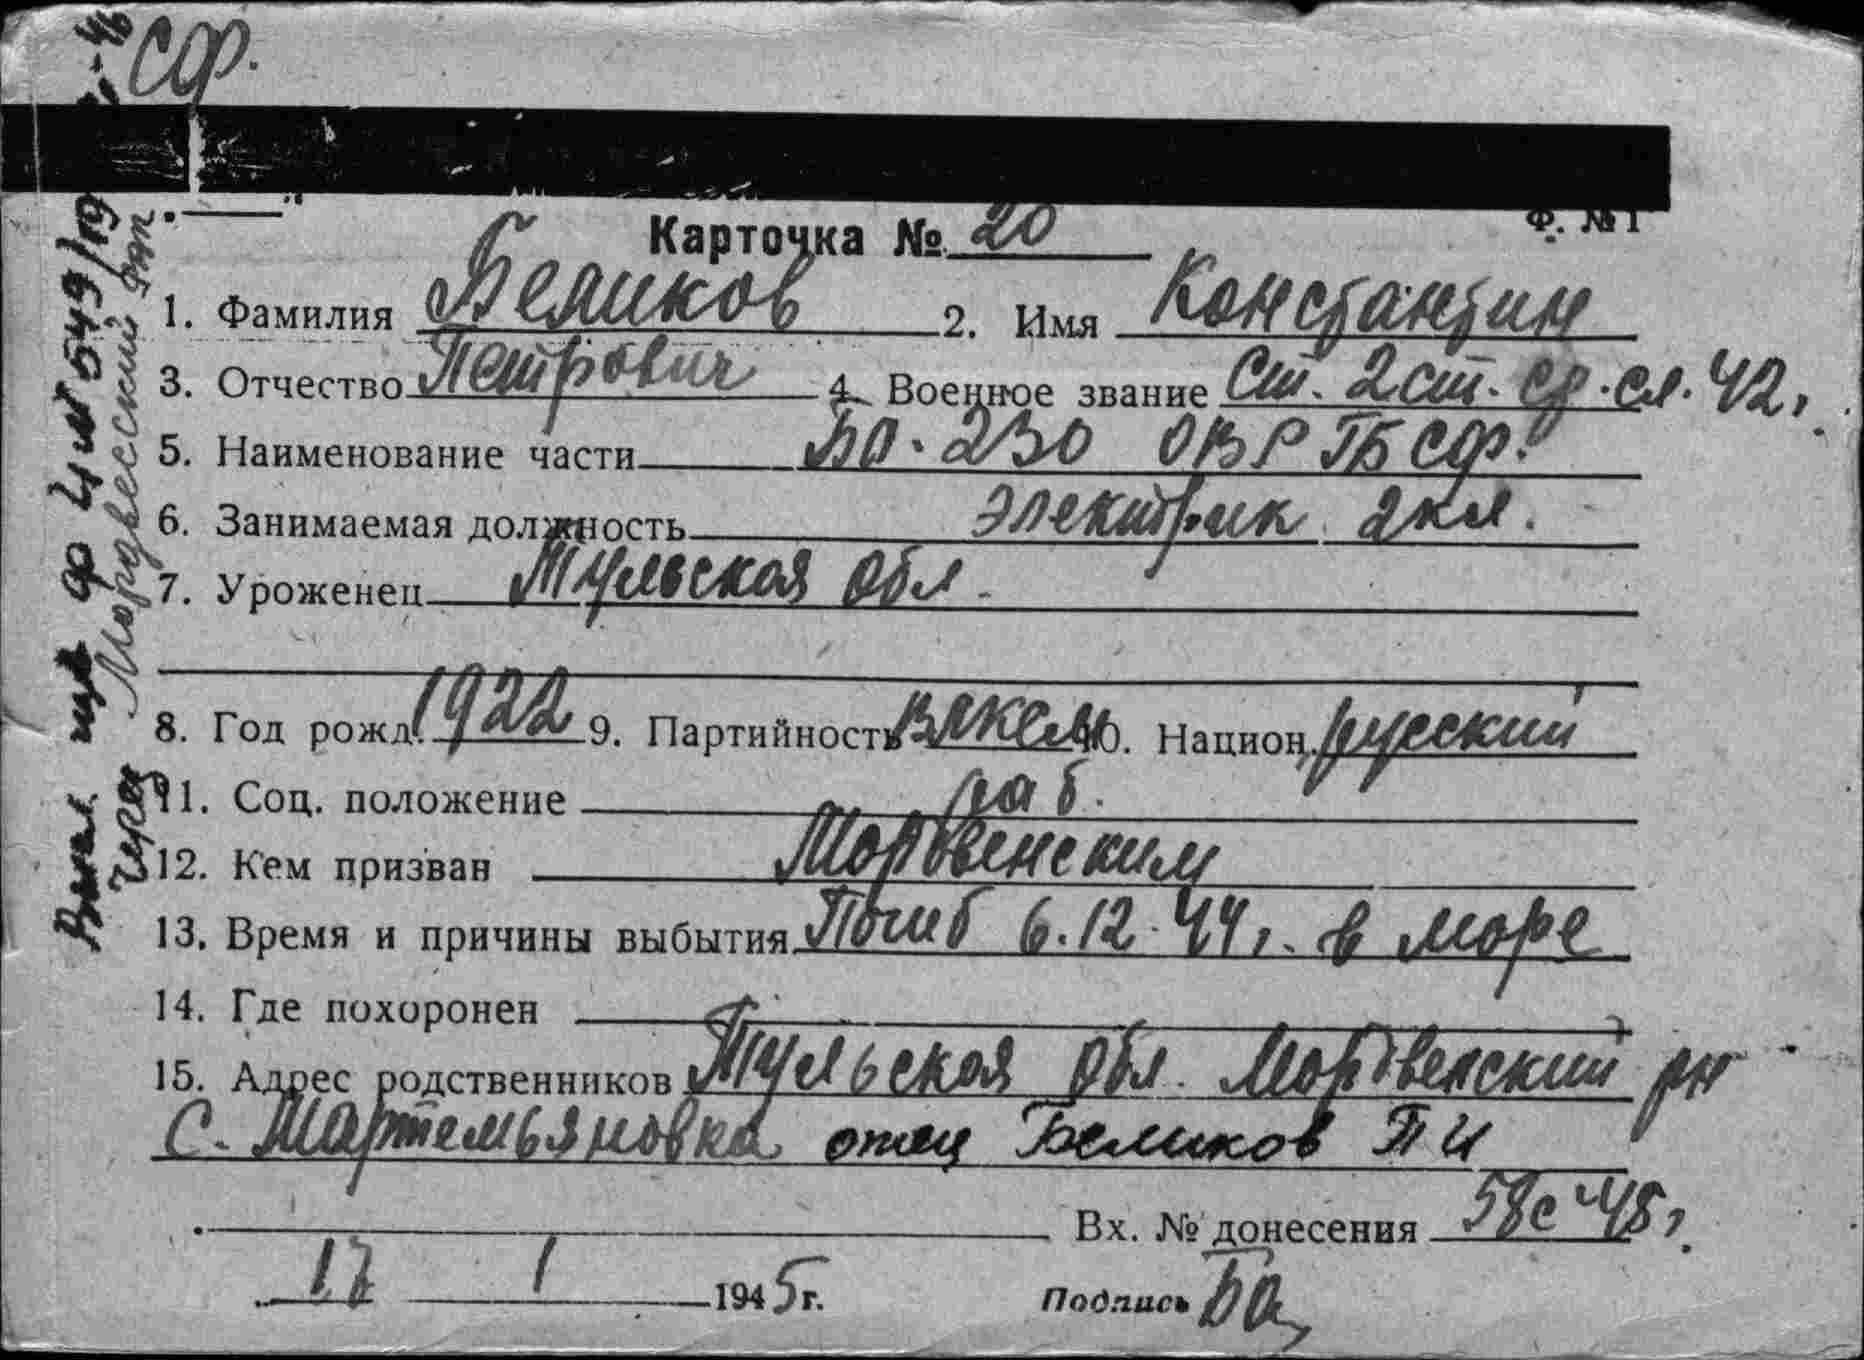 СФ.
Карточка № 20
Ф. № 1
1. Фамилия Беликов 2. Имя Константин
3. Отчество Петрович 4. Военное звание Ст. 2 ст. ср. сл. 42 г.
5. Наименование части БО-230 ОВР ГБ СФ.
6. Занимаемая должность электрик 2 кл.
7. Уроженец Тульская обл.
8. Год рожд. 1922 9. Партийность ВЛКСМ 10. Национ. русский
11. Соц. положение раб.
12. Кем призван Мордвенским
13. Время и причины выбытия Погиб 6.12.44 г. в море
14. Где похоронен
15. Адрес родственников Тульская обл. Мордвенский рн
с. Мартемьяновка отец Беликов П И
Вх. № донесения 58с 45 г.
17 1 1945 г. Подпись
ф 4 № 549/19
через Мордвесский